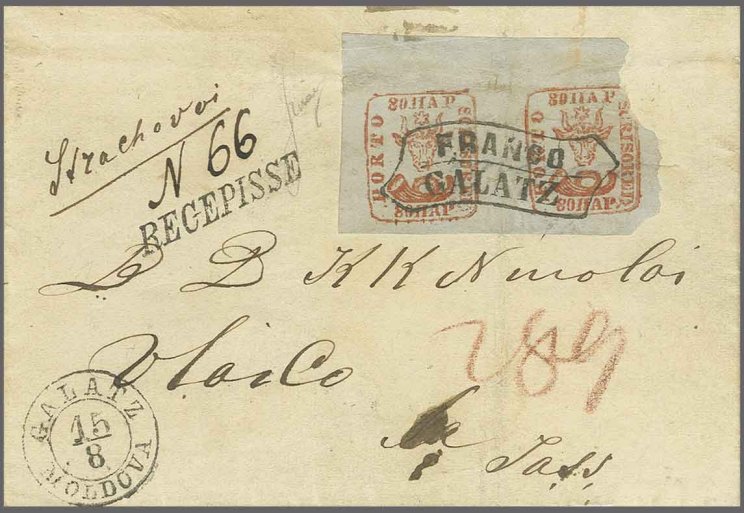 Strachovoi
N 66
RECEPISSE
PORTO
80 ПАР
80 ПАР
80 ПАР
80 ПАР
FRANCO
GALATZ
D D K K Nicolai
Vlaico
la Jass
GALATZ
15/8
MOLDOVA